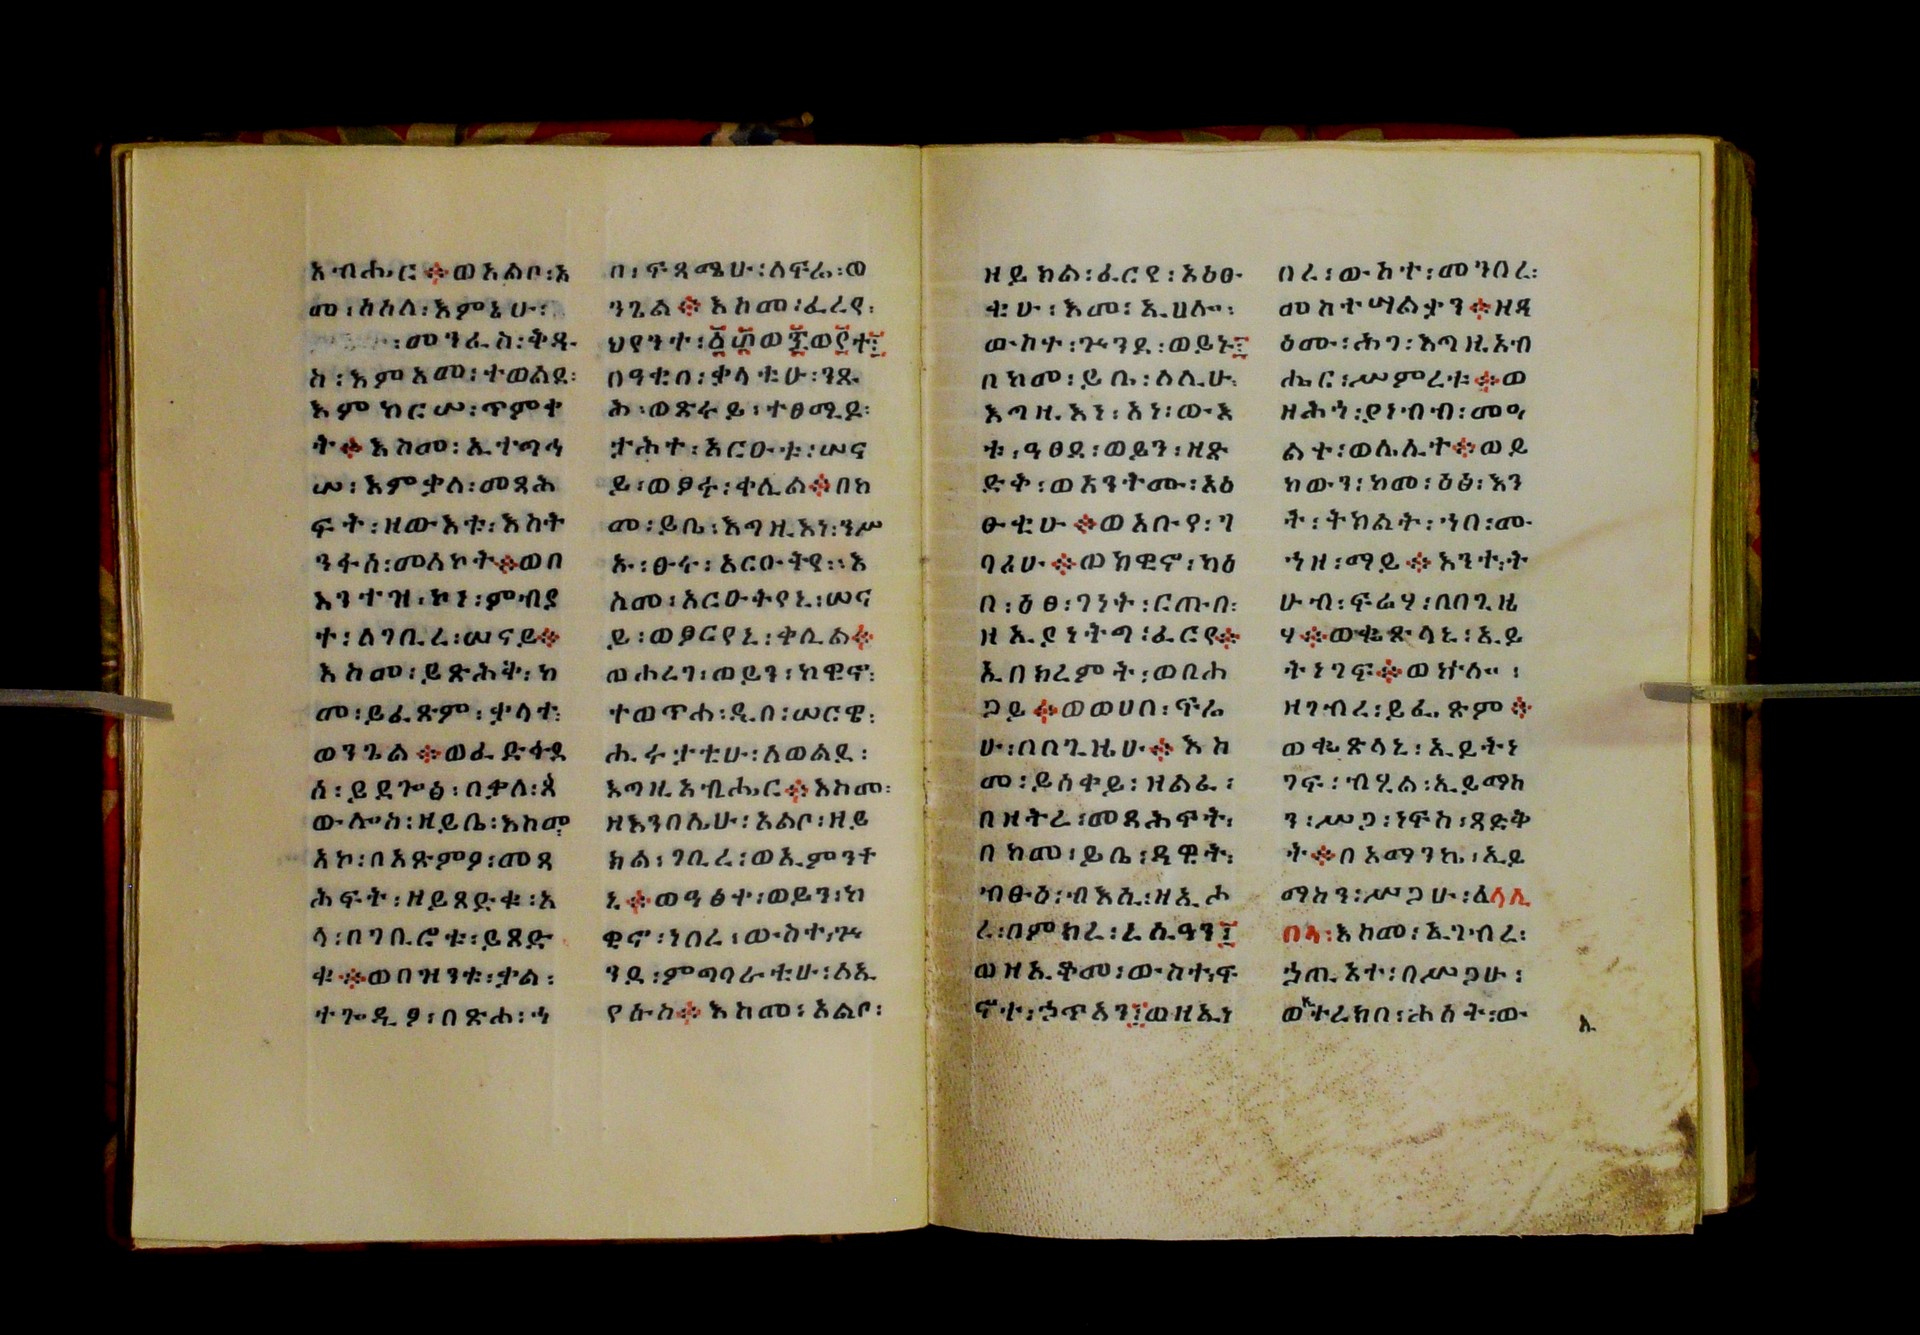 እብሔር፨ወአልቦ፡አ
መ፡ከአለ፡እምኔሁ፡
፡መንፈስ፡ቅዱ
ስ፡እምአመ፡ተወልደ፡
እምከርሠ፡ጥምቀ
ት፨እስመ፡ኢተጣኅ
ሠ፡እምቃለ፡መጻሕ
ፍት፡ዘውእቱ፡እስት
ንፋስ፡መለኮት፨ወበ
እንተዝ፡ኮነ፡ምብያ
ተ፡ለገቢረ፡ሠናይ፨
እስመ፡ይጽሕቅ፡ከ
መ፡ይፈጽም፡ቃላተ፡
ወንጌል፨ወፈድፋደ
ሰ፡ይደጐፅ፡በቃለ፡ጳ
ውሎስ፡ዘይቤ፡አከመ
አኮ፡በአጽምዖ፡መጻ
ሕፍት፡ዘይጸድቁ፡አ
ላ፡በገቢሮቱ፡ይጸድ
ቁ፨ወበዝንቱ፡ቃል፡
ተጐዲዖ፡በጽሐ፡ኀ
በ፡ፍጻሜሁ፡ለፍሬ፡ወ
ንጌል፨እስመ፡ፈረየ፡
ህየንተ፡፩፴ወ፷ወ፻ተ፤
በዓቂበ፡ቃላቲሁ፡ንጹ
ሕ፡ወጽሩይ፡ተፀሚደ፡
ታሕተ፡አርዑቱ፡ሠና
ይ፡ወፆሩ፡ቀሊል፨በከ
መ፡ይቤ፡እግዚእነ፡ንሥ
ኡ፡ፁሩ፡አርዑትየ፡እ
ስመ፡አርዑትየኒ፡ሠና
ይ፡ወፆርየኒ፡ቀሊል፨
ወሐረገ፡ወይን፡ከዊኖ፡
ተወጥሐ፡ዲበ፡ሠርዌ፡
ሒሩታቲሁ፡ለወልደ፡
እግዚአብሔር፨እስመ፡
ዘእንበሌሁ፡አልቦ፡ዘይ
ክል፡ገቢረ፡ወኢምንተ
ኒ፨ወዓፅተ፡ወይን፡ከ
ዊኖ፡ነበረ፡ውስተ፡ጕ
ንደ፡ምግባራቲሁ፡ለኢ
የሱስ፨እስመ፡አልቦ፡
ዘይክል፡ፈርየ፡አዕፀ
ቂሁ፡እመ፡ኢሀሎ፡
ውስተ፡ጕንደ፡ወይኑ፤
በከመ፡ይቤ፡ለሊሁ፡
እግዚእነ፡አነ፡ውእ
ቱ፡ዓፀደ፡ወይን፡ዘጽ
ድቅ፡ወአንትሙ፡አዕ
ፁቂሁ፨ወአቡየ፡ገ
ባሪሁ፨ወከዊኖ፡ካዕ
በ፡ዕፀ፡ገነት፡ርጡበ፡
ዘኢያነትግ፡ፈርየ፨
ኢበክረምት፡ወበሐ
ጋይ፨ወወሀበ፡ፍሬ
ሁ፡በበጊዜሁ፨እስ
መ፡ይሰቀይ፡ዘልፈ፡
በዘትረ፡መጻሕፍት፡
በከመ፡ይቤ፡ዳዊት፡
ብፁዕ፡ብእሲ፡ዘኢሖ
ረ፡በምክረ፡ረሲዓን፤
ወዘኢቆመ፡ውስተ፡ፍ
ኖተ፡ኃጥአን፤ወዘኢነ
በረ፡ውስተ፡መንበረ፡
መስተሣልቃን፨ዘዳ
ዕሙ፡ሕገ፡እግዚአብ
ሔር፡ሥምረቱ፨ወ
ዘሕጎ፡ያነብብ፡መዓ
ልተ፡ወሌሊተ፨ወይ
ከውን፡ከመ፡ዕፅ፡እን
ት፡ትክልት፡ኀበ፡ሙ
ኀዘ፡ማይ፨እንተ፡ት
ሁብ፡ፍሬሃ፡በበጊዜ
ሃ፨ወቈጽላኒ፡ኢይ
ትነገፍ፨ወኵሎ፡
ዘገብረ፡ይፌጽም፨
ወቈጽላኒ፡ኢይትነ
ገፍ፡ብሂል፡ኢይማስ
ን፡ሥጋ፡ነፍስ፡ጻድቅ
ት፨በአማንኬ፡ኢይ
ማስን፡ሥጋሁ፡ለላሊ
በላ፡እስመ፡ኢገብረ፡
ኃጢአተ፡በሥጋሁ፡
ወኢተረክበ፡ሐሰት፡ው